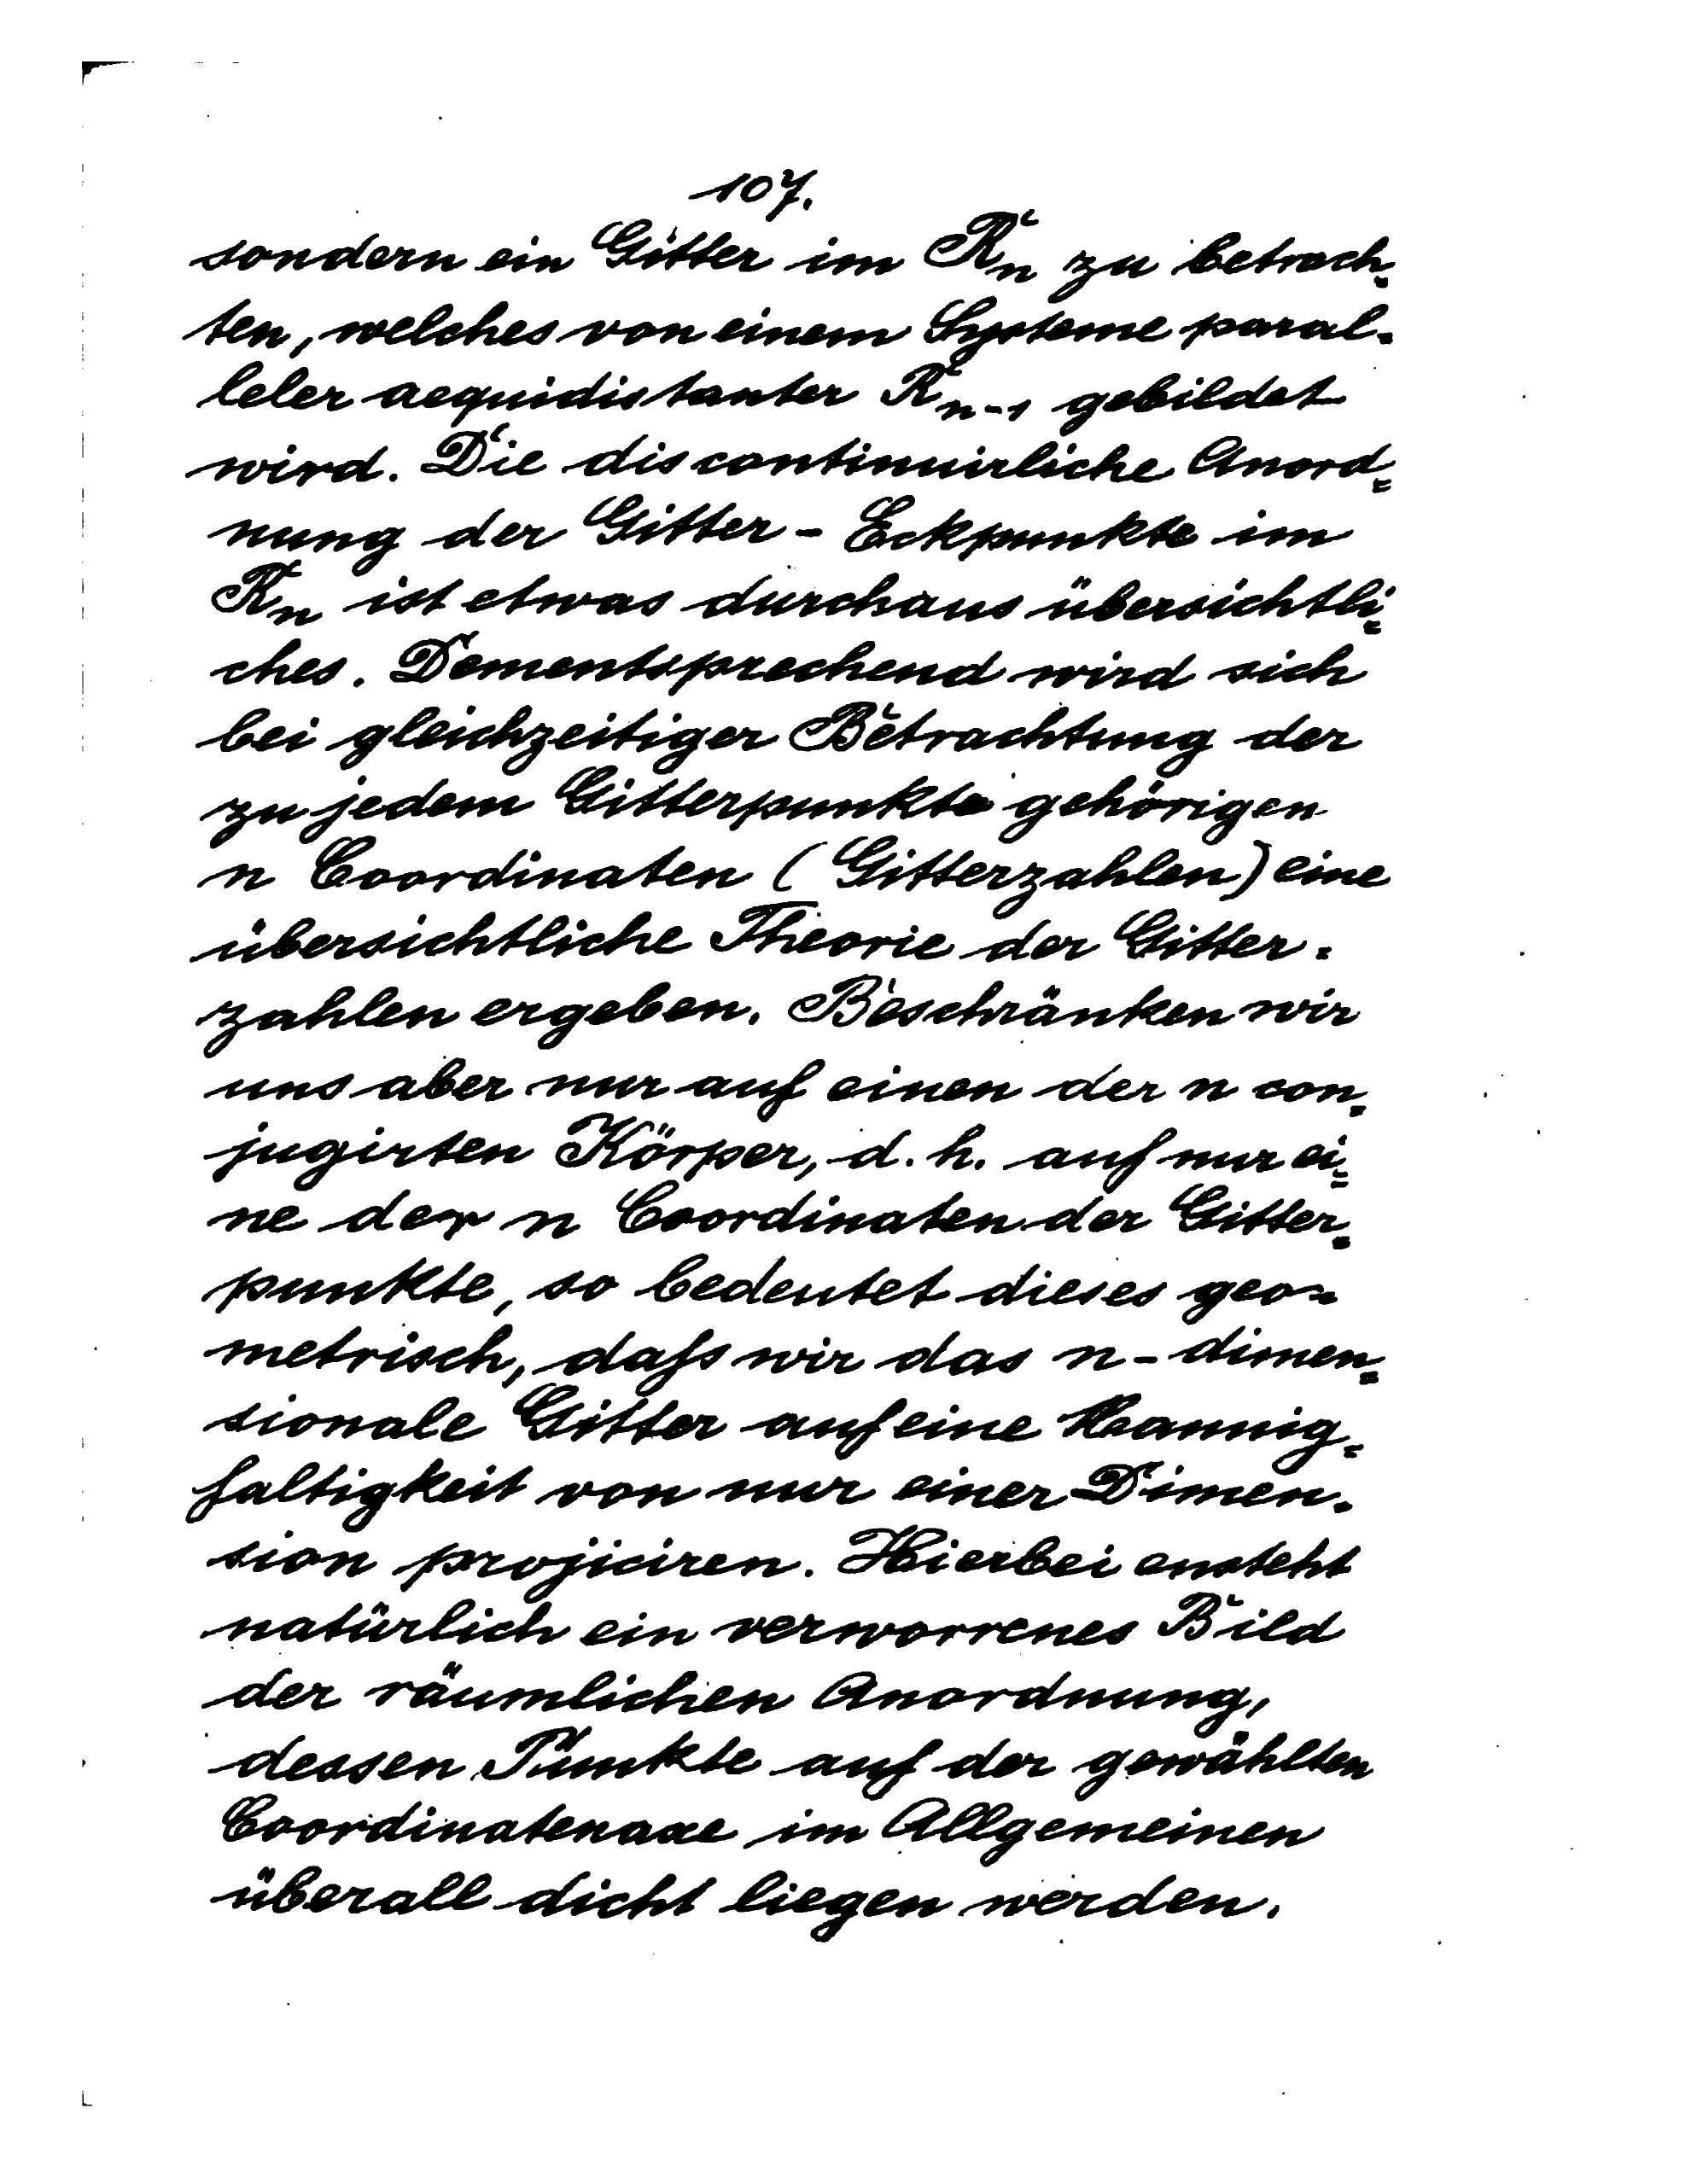 107.
sondern ein Gitter im Rₙ zu betrach=
ten, welches von einem Systeme paral=
leler aequidistanter Rₙ₋₁ gebildet
wird. Die discontinuirliche Anord=
nung der Gitter-Eckpunkte im
Rₙ ist etwas durchaus übersichtli=
ches. Dementsprechend wird sich
bei gleichzeitiger Betrachtung der
zu jedem Gitterpunkte gehörigen
n Coordinaten (Gitterzahlen) eine
übersichtliche Theorie der Gitter=
zahlen ergeben. Beschränken wir
uns aber nur auf einen der n con=
jugirten Körper, d. h. auf nur ei=
ne der n Coordinaten der Gitter=
punkte, so bedeutet dieses geo=
metrisch, dafs wir das n-dimen=
sionale Gitter auf eine Mannig=
faltigkeit von nur einer Dimen=
sion projiciren. Hierbei ensteht
natürlich ein verworrenes Bild
der räumlichen Anordnung,
dessen Punkte auf der gewählten
Coordinatenaxe im Allgemeinen
überall dicht liegen werden.